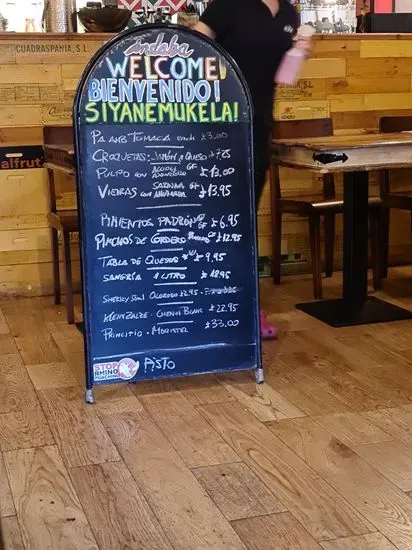 CUADRASPANIA, S.L.
alfruit
indaba
WELCOME!
BIENVENIDO!
SIYANEMUKELA!
PA AMB TOMACA each £3.00
CROQUETAS: JAMÓN / QUESO £7.25
PULPO CON GF £13.00
VIEIRAS CON GF £13.95
PIMIENTOS PADRÓN GF £6.95
PINCHOS DE CORDERO GF £12.95
TABLA DE QUESOS £9.95
SANGRÍA 1 LITRO £18.95
SHERRY 50ml OLOROSO £2.95
KLEINZALZE: CHENIN BLANC £22.95
PRINCIPIO: MORISTEL £33.00
PISTO
STOP
RHINO
POACHING